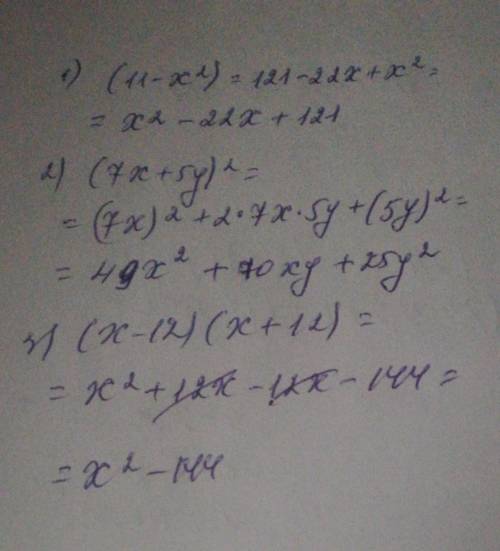 1) (11-x²) = 121-22x+x² =
= x² - 22x + 121
2) (7x+5y)² =
= (7x)² + 2·7x·5y + (5y)² =
= 49x² + 70xy + 25y²
3) (x-12)(x+12) =
= x² + 12x - 12x - 144 =
= x² - 144